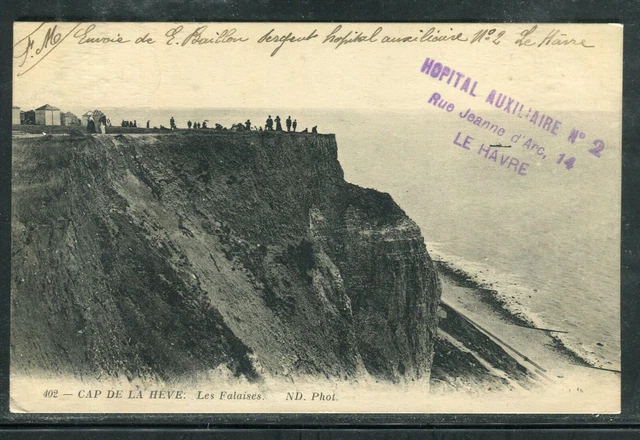 F. M Envois de E. Baillon sergent hopital auxiliaire No 2 Le Hâvre
HOPITAL AUXILIAIRE N° 2
Rue Jeanne d'Arc, 14
LE HÂVRE
402 — CAP DE LA HÈVE. Les Falaises. ND. Phot.